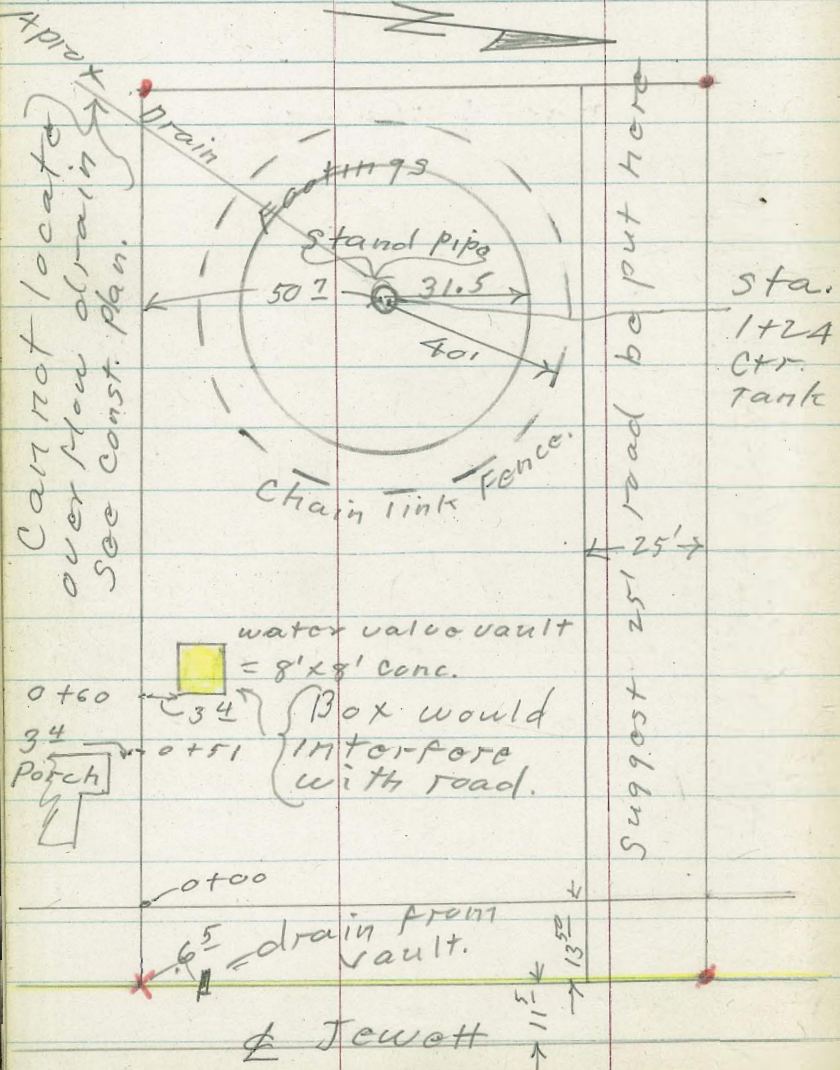 Aprox
Drain
Can not locate
over flow drain
See Const. Plan.
Footings
Stand pipe
50 ?
31.5
40'
Sta.
1+24
Ctr.
Tank
Chain link Fence.
Suggest 25' road be put here
25'
water valve vault
= 8'x8' conc.
0+60
3 4
Box would
interfere
with road.
3 4
0+51
Porch
0+00
.6 5
drain from
vault.
13 50
11 5
℄ Jewett